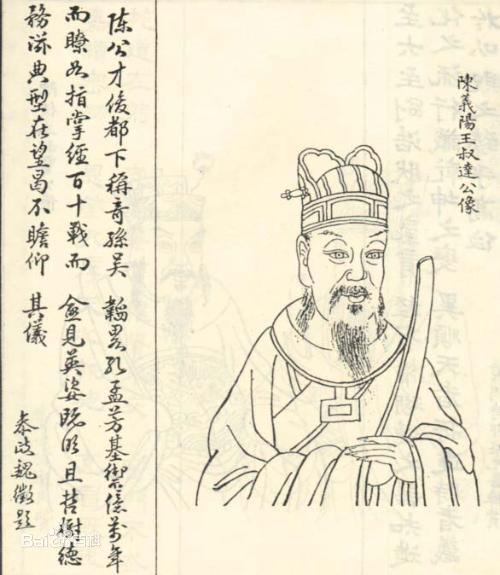 陳義陽王叔達公像
陈公才俊都下稱奇孫吴韜畧孔孟芳基禦億萬年
而瞭如指掌經百十戰而僉見英姿既明且哲樹德
務滋典型在望曷不瞻仰其儀
参政魏徵題
Bai百科